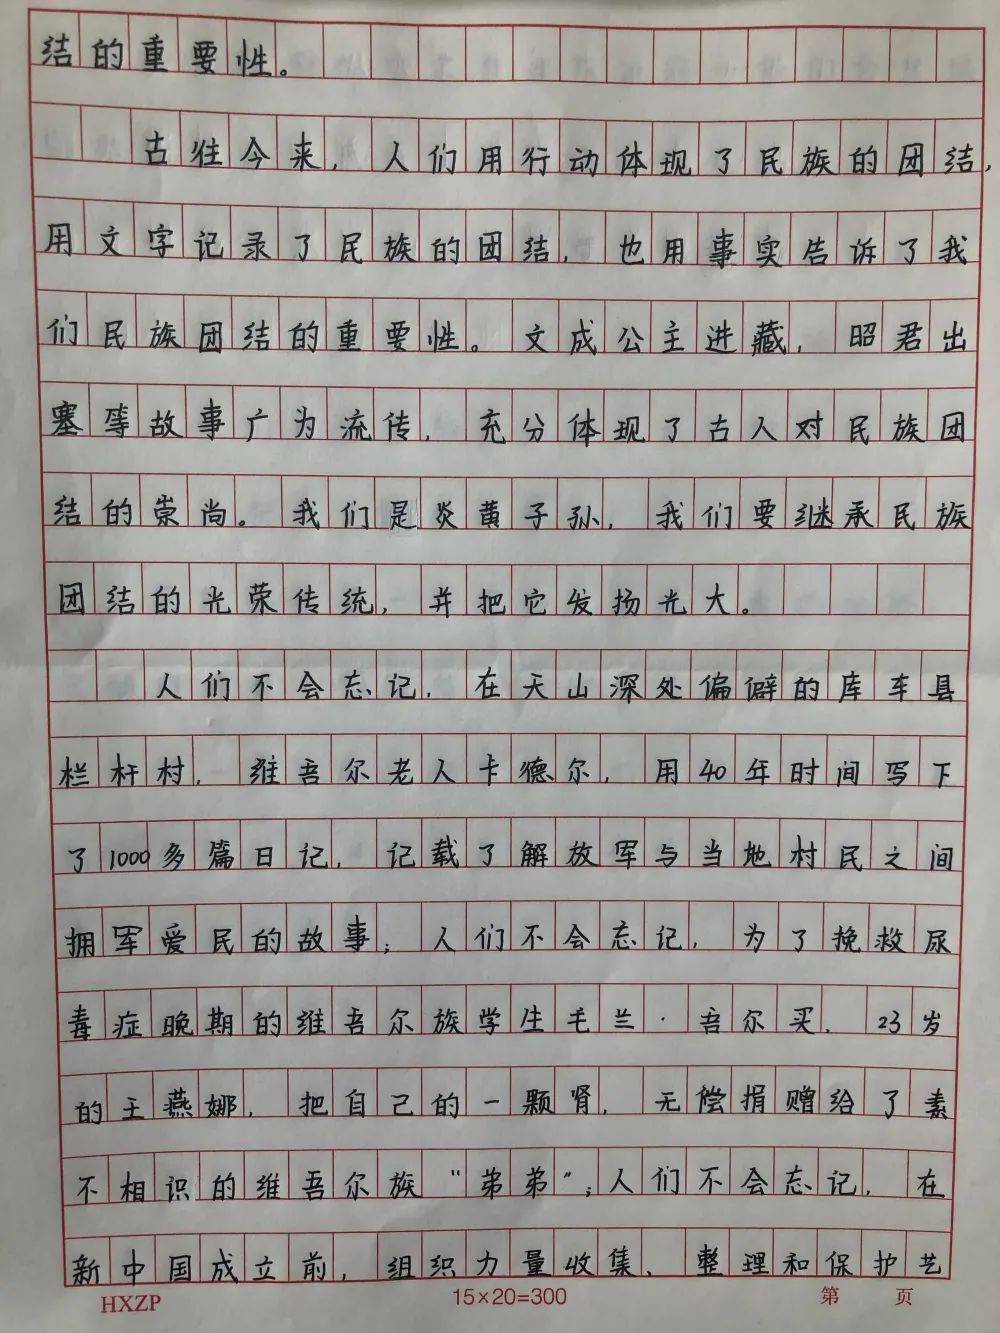 结的重要性。
古往今来，人们用行动体现了民族的团结，
用文字记录了民族的团结，也用事实告诉了我
们民族团结的重要性。文成公主进藏，昭君出
塞等故事广为流传，充分体现了古人对民族团
结的崇尚。我们是炎黄子孙，我们要继承民族
团结的光荣传统，并把它发扬光大。
人们不会忘记，在天山深处偏僻的库车县
栏杆村，维吾尔老人卡德尔，用40年时间写下
了1000多篇日记，记载了解放军与当地村民之间
拥军爱民的故事；人们不会忘记，为了挽救尿
毒症晚期的维吾尔族学生毛兰·吾尔买，23岁
的王燕娜，把自己的一颗肾，无偿捐赠给了素
不相识的维吾尔族“弟弟”；人们不会忘记，在
新中国成立前，组织力量收集、整理和保护艺
HXZP 15×20=300 第 页